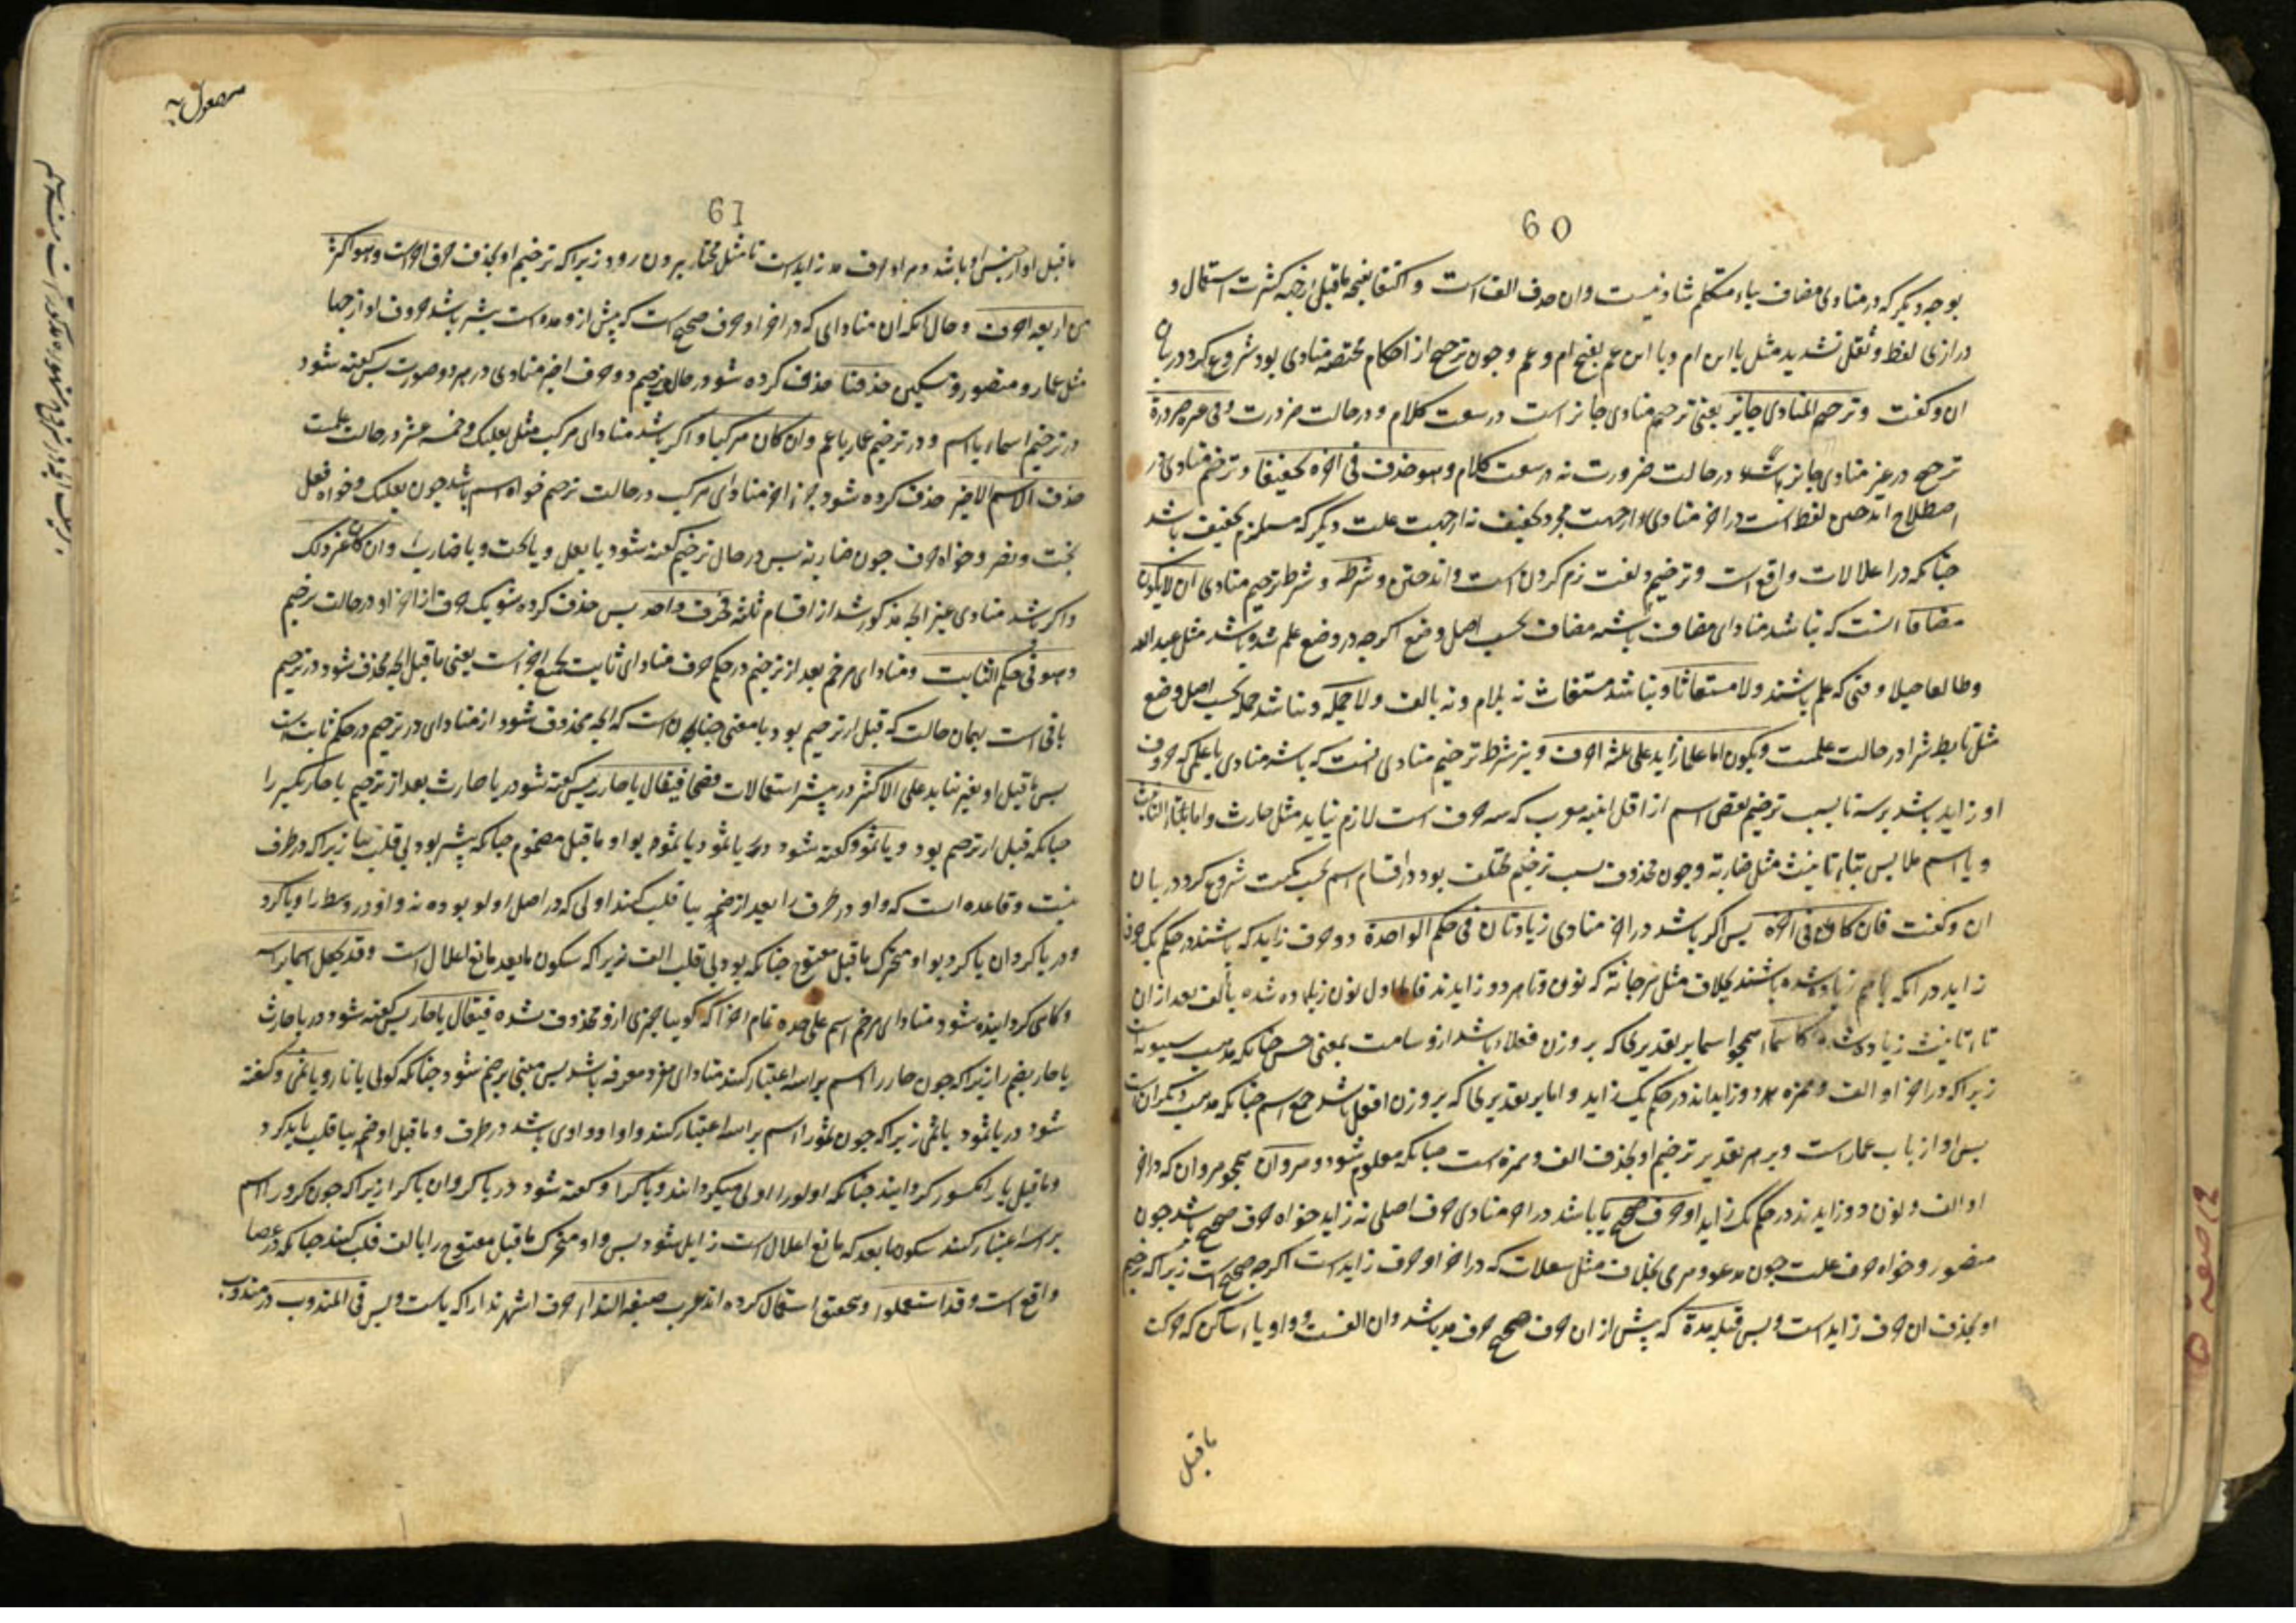 60
بوجه دیگر که در منادی مضاف بیاء متکلم شاذ نیست وان حذف الف است و اکتفا بفتحه ماقبل از جهة کثرت استعمال و
درازی لفظ و ثقل تشدید مثل یا ابن ام ویا ابن عم بفتح ام و عم و چون ترخیم از احکام مختصه منادی بود شروع کرد در بیان
ان و گفت و ترخیم المنادی جایز یعنی ترخیم منادی جایز است در سعت کلام و در حالت ضرورت وفی غیره ضرورة
ترخیم در غیر منادی جایز باشد در حالت ضرورت نه در سعت کلام وهو حذف فی اخره تخفیفا و ترخیم منادی در
اصطلاح انداختن لفظ است در اخر منادی از جهت مجرد تخفیف نه از جهت علت دیگر که مستلزم تخفیف باشد
چنانکه در اعلالات واقع است و ترخیم در لغت نرم کردن است و انداختن و شرطه و شرط ترخیم منادی ان لا یکون
مضافا انست که نباشد منادای مضاف باشبه مضاف بحسب اصل وضع اگرچه در وضع علم شده باشد مثل عبدالله
وطالعا جبلا وقتی که علم باشند ولا مستغاثا و نباشد مستغاث نه بلام و نه بالف ولا جملة و نباشد جمله بحسب اصل وضع
مثل تابط شرا در حالت علمیت ویکون اما علما زاید علی ثلثة احرف و نیز شرط ترخیم منادی انست که باشد منادی یا علمی که حروف
او زاید باشد بر سه تا بسبب ترخیم نقص اسم از اقل ابنیه معرب که سه حرف است لازم نیاید مثل حارث واما بتاء التانیث
و یا اسم ملابس بتاء تانیث مثل ضاربة و چون محذوف بسبب ترخیم مختلف بود در اقسام اسم بحسب کمیت شروع کرد در بیان
ان و گفت فان کان فی اخره پس اگر باشد در اخر منادی زیادتان فی حکم الواحدة دو حرف زاید که باشند در حکم یک حرف
زاید در انکه باهم زیاده شده باشند بخلاف مثل مرجانة که نون و تا هر دو زایدند فاما اول نون زیاده شده بالف بعد از ان
تاء تانیث زیاده شده کاسماء همچو اسما بر تقدیری که بر وزن فعلاء باشد از وسامت بمعنی حسن چنانکه مذهب سیبویه است
زیرا که در اخر او الف و همزه هر دو زایداند در حکم یک زاید و اما بر تقدیری که بر وزن افعال باشد جمع اسم چنانکه مذهب دیگران است
پس او از باب عمار است و بر هر تقدیر ترخیم او بحذف الف و همزه است چنانکه معلوم شود و مروان همچو مروان که در اخر
او الف و نون دو زایدند در حکم یک زاید او حرف صحیح یا باشد در اخر منادی حرف اصلی نه زاید خواه حرف صحیح باشد چون
منصور و خواه حرف علت چون مدعو و مرمی بخلاف مثل سعلات که در اخر او حرف زاید است اگرچه صحیح است زیرا که ترخیم
او بحذف ان حرف زاید است و بس قبله مدة که پیش از ان حرف صحیح حرف مد باشد وان الف است و واو و یاء ساکن که حرکت
ماقبل
61
ماقبل او از جنس او باشد و مراد حرف مد زاید است تا مثل مختار بیرون رود زیرا که ترخیم او بحذف حرف اخر است وهو اکثر
من اربعه احرف و حال انکه ان منادای که در اخر او حرف صحیح است که پیش از و مده است بیشتر باشد حروف او از چهار
مثل عمار و منصور و مسکین حذفتا حذف کرده شود در حال ترخیم دو حرف اخیر منادی در هر دو صورت پس گفته شود
در ترخیم اسماء یا اسم و در ترخیم عمار یا عم وان کان مرکبا و اگر باشد منادای مرکب مثل بعلبک و خمسه عشر در حالت علمیت
حذف الاسم الاخیر حذف کرده شود جزء اخر منادای مرکب در حالت ترخیم خواه اسم باشد چون بعلبک و خواه فعل
بخت ونصر و خواه حرف چون ضاربة پس در حال ترخیم گفته شود یا بعل و یا بخت و یا ضارب وان کان غیر ذلک
و اگر باشد منادی غیر انچه مذکور شد از اقسام ثلثه فحرف واحد پس حذف کرده شود یک حرف از اخر او در حالت ترخیم
وهو فی حکم الثابت و منادای مرخم بعد از ترخیم در حکم حرف منادای ثابت بجمیع اجزا است یعنی ماقبل انچه محذوف شود در ترخیم
باقی است بهمان حالت که قبل از ترخیم بود یا بمعنی چنان است که انچه محذوف شود از منادای در ترخیم در حکم ثابت است
پس ماقبل او تغیر نیابد علی الاکثر در بیشتر استعمالات فصحا فیقال یا حار پس گفته شود در یا حارث بعد از ترخیم یا حار بکسر را
چنانکه قبل از ترخیم بود و یا ثمو و گفته شود در یا ثمود یا ثمو بواو ماقبل مضموم چنانکه پیشتر بود بی قلب بیا زیرا که در طرف
نیست و قاعده است که واو در طرف را بعد از ضمه بیا قلب کنند اولی که در اصل اولو بوده نه واو در وسط را ویا کرو
و در یا کروان یا کرو بواو متحرک ماقبل مفتوح چنانکه بود بی قلب الف زیرا که سکون مابعد مانع اعلال است وقد یجعل اسما براسه
و گاهی گردانیده شود منادای مرخم اسم علی حده تمام اجزا که گویا چیزی ازو محذوف نشده فیقال یا حار پس گفته شود در یا حارث
یا حار بضم را زیرا که چون حار را اسم براسه اعتبار کنند منادای مفرد معرفه باشد پس مبنی بر ضم شود چنانکه گوئی یا نار ویا ثمی و گفته
شود در یا ثمود یا ثمی زیرا که چون ثمو را اسم براسه اعتبار کنند واو او واوی باشد در طرف و ماقبل او ضمه بیا قلب باید کرد
و ماقبل یا را مکسور گردانید چنانکه اولو را اولی میگردانند ویا کرا و گفته شود در یا کروان یا کرا زیرا که چون کرو را اسم
براسه اعتبار کنند سکون مابعد که مانع اعلال است زایل شود پس واو متحرک ماقبل مفتوح را بالف قلب کنند چنانکه در عصا
واقع است وقد استعملوا و بتحقیق استعمال کرده اند عرب صیغه النداء حرف اشهر ندا را که یاست و بس فی المندوب در مندوب